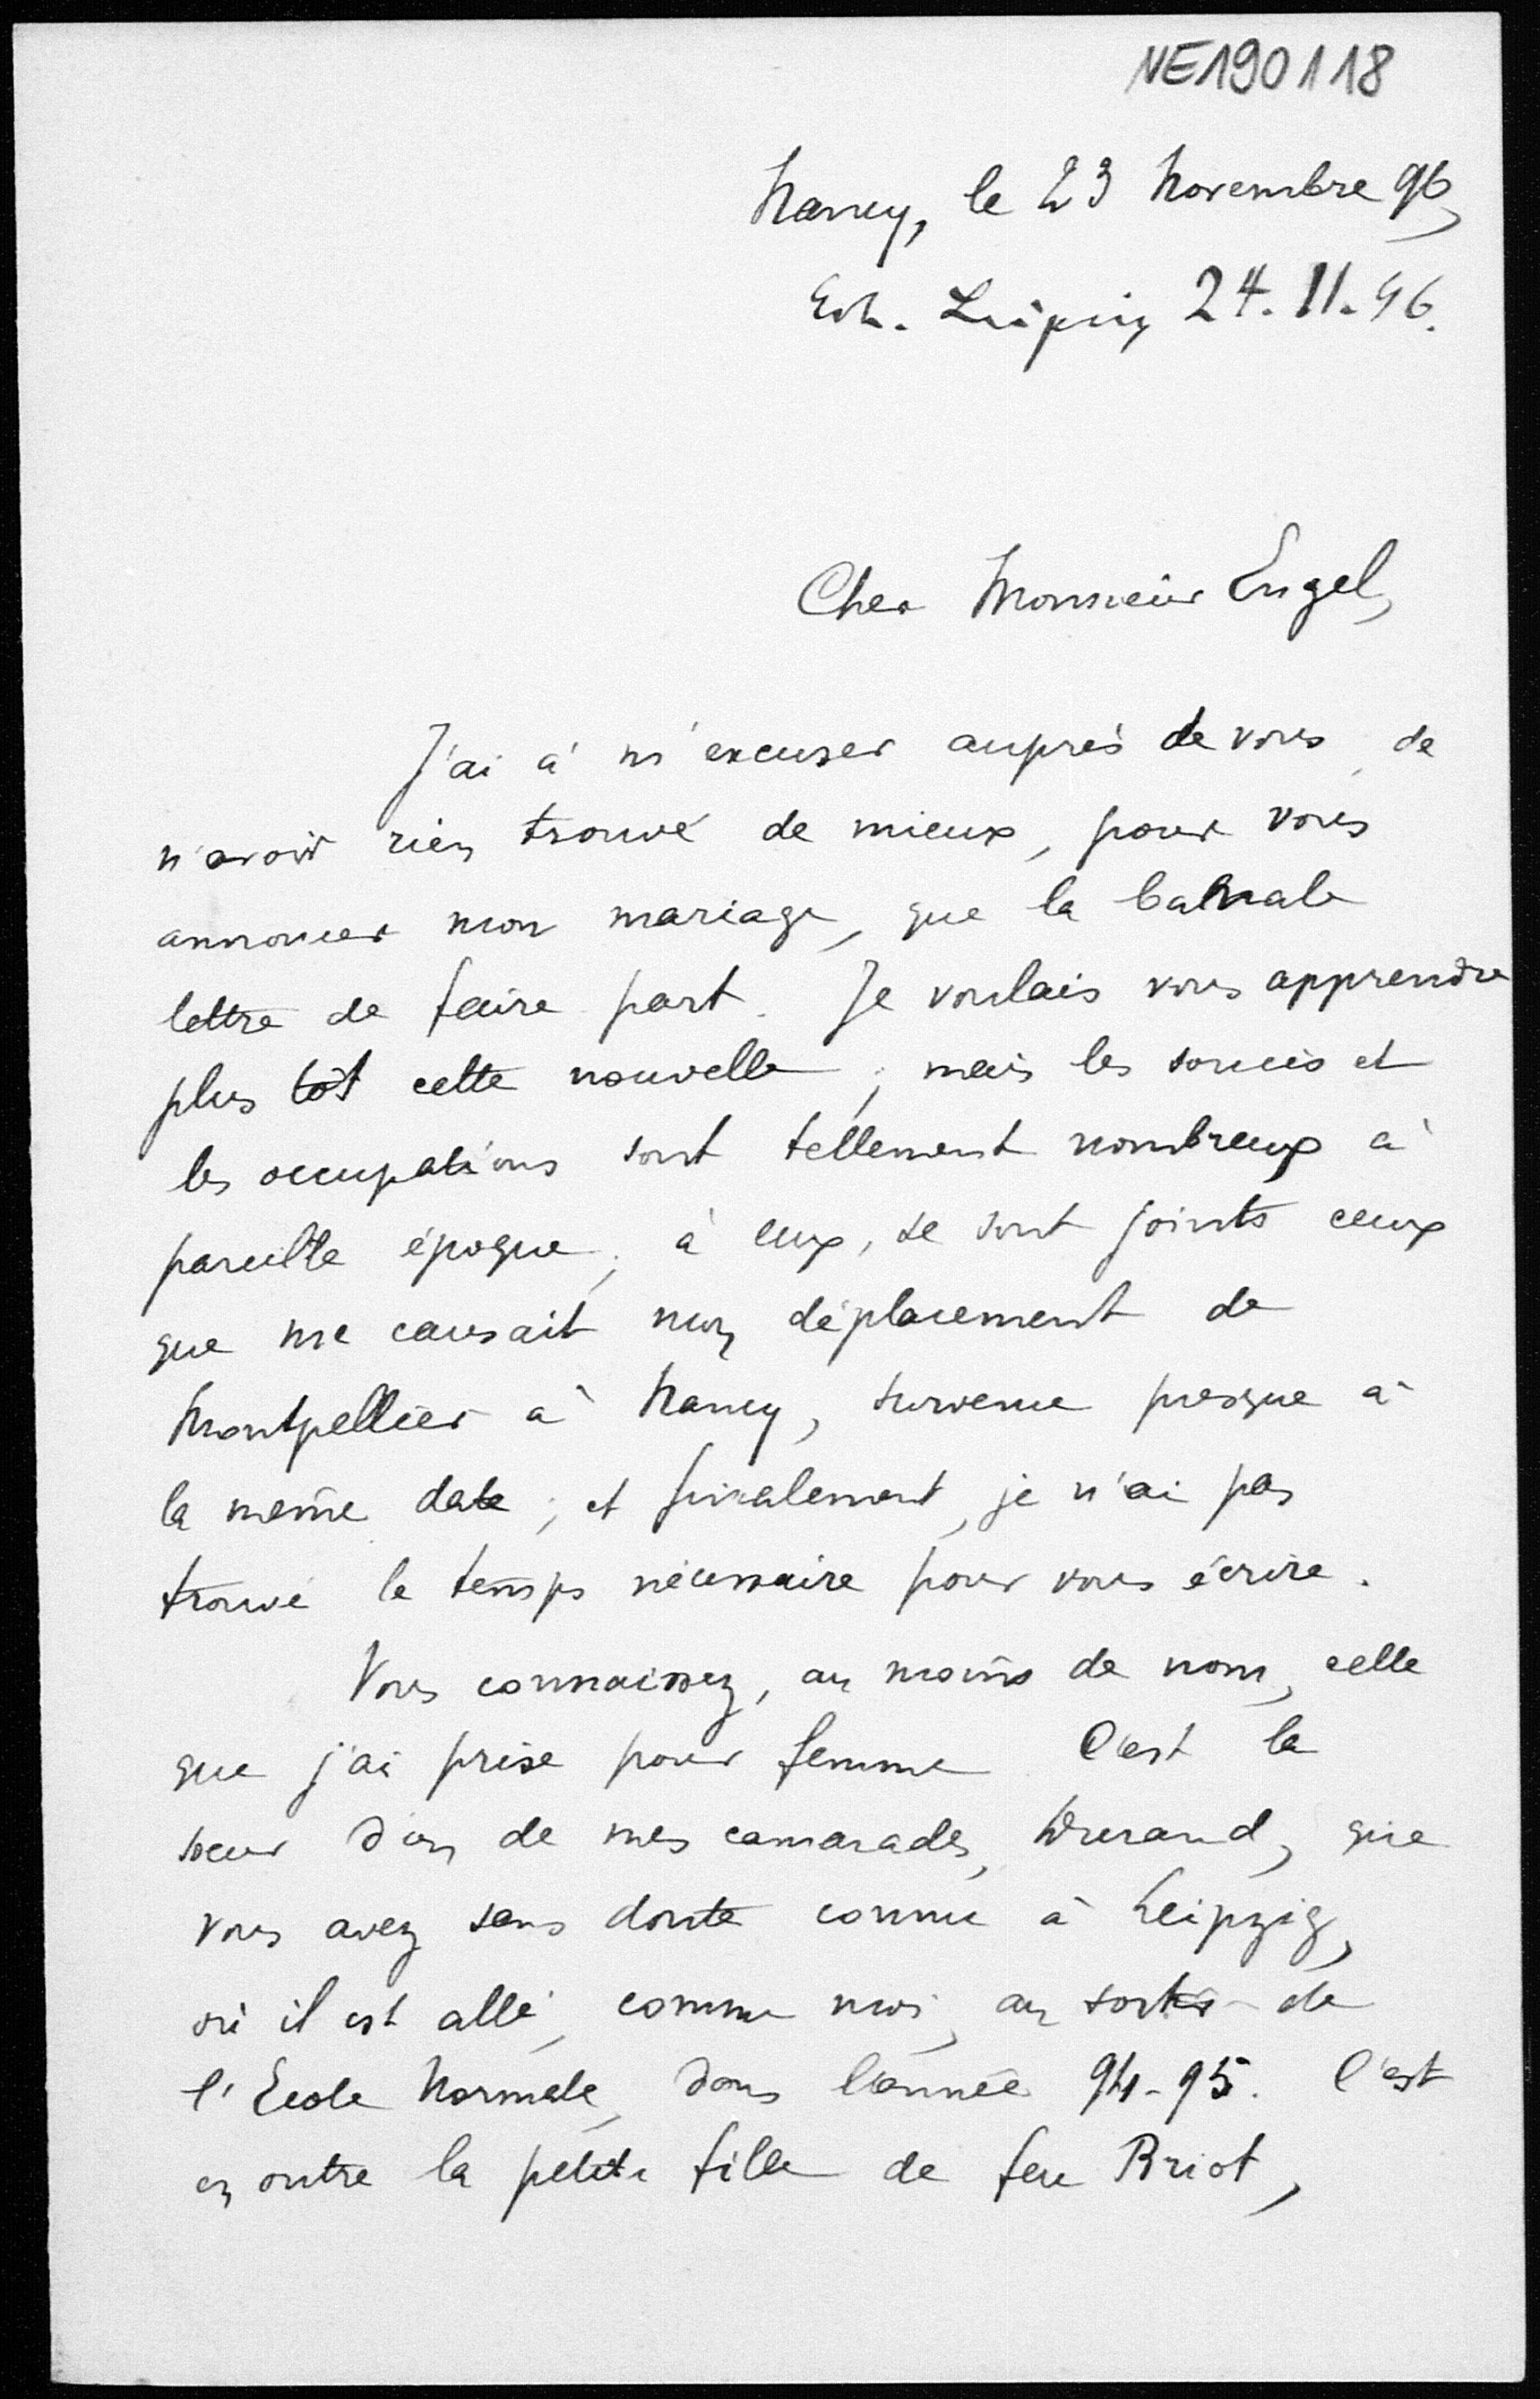 NE190118
Nancy, le 23 Novembre 96,
Erh. Leipzig 24.11.96.
Cher Monsieur Engel,
J'ai à m'excuser auprès de vous, de
n'avoir rien trouvé de mieux, pour vous
annoncer mon mariage, que la banale
lettre de faire part. Je voulais vous apprendre
plus tôt cette nouvelle ; mais les soucis et
les occupations sont tellement nombreux à
pareille époque ; à eux, se sont joints ceux
que me causait mon déplacement de
Montpellier à Nancy, survenu presque à
la même date ; et finalement, je n'ai pas
trouvé le temps nécessaire pour vous écrire.
Vous connaissez, au moins de nom, celle
que j'ai prise pour femme. C'est la
sœur d'un de mes camarades, Durand, que
vous avez sans doute connu à Leipzig,
où il est allé, comme moi, au sortir de
l'Ecole Normale, dans l'année 94-95. C'est
en outre la petite fille de feu Briot,